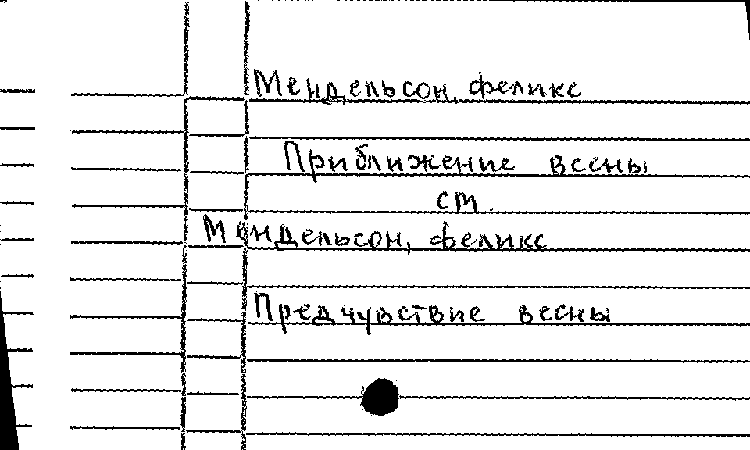 Мендельсон, феликс
Приближение весны
см.
Мендельсон, феликс
Предчувствие весны